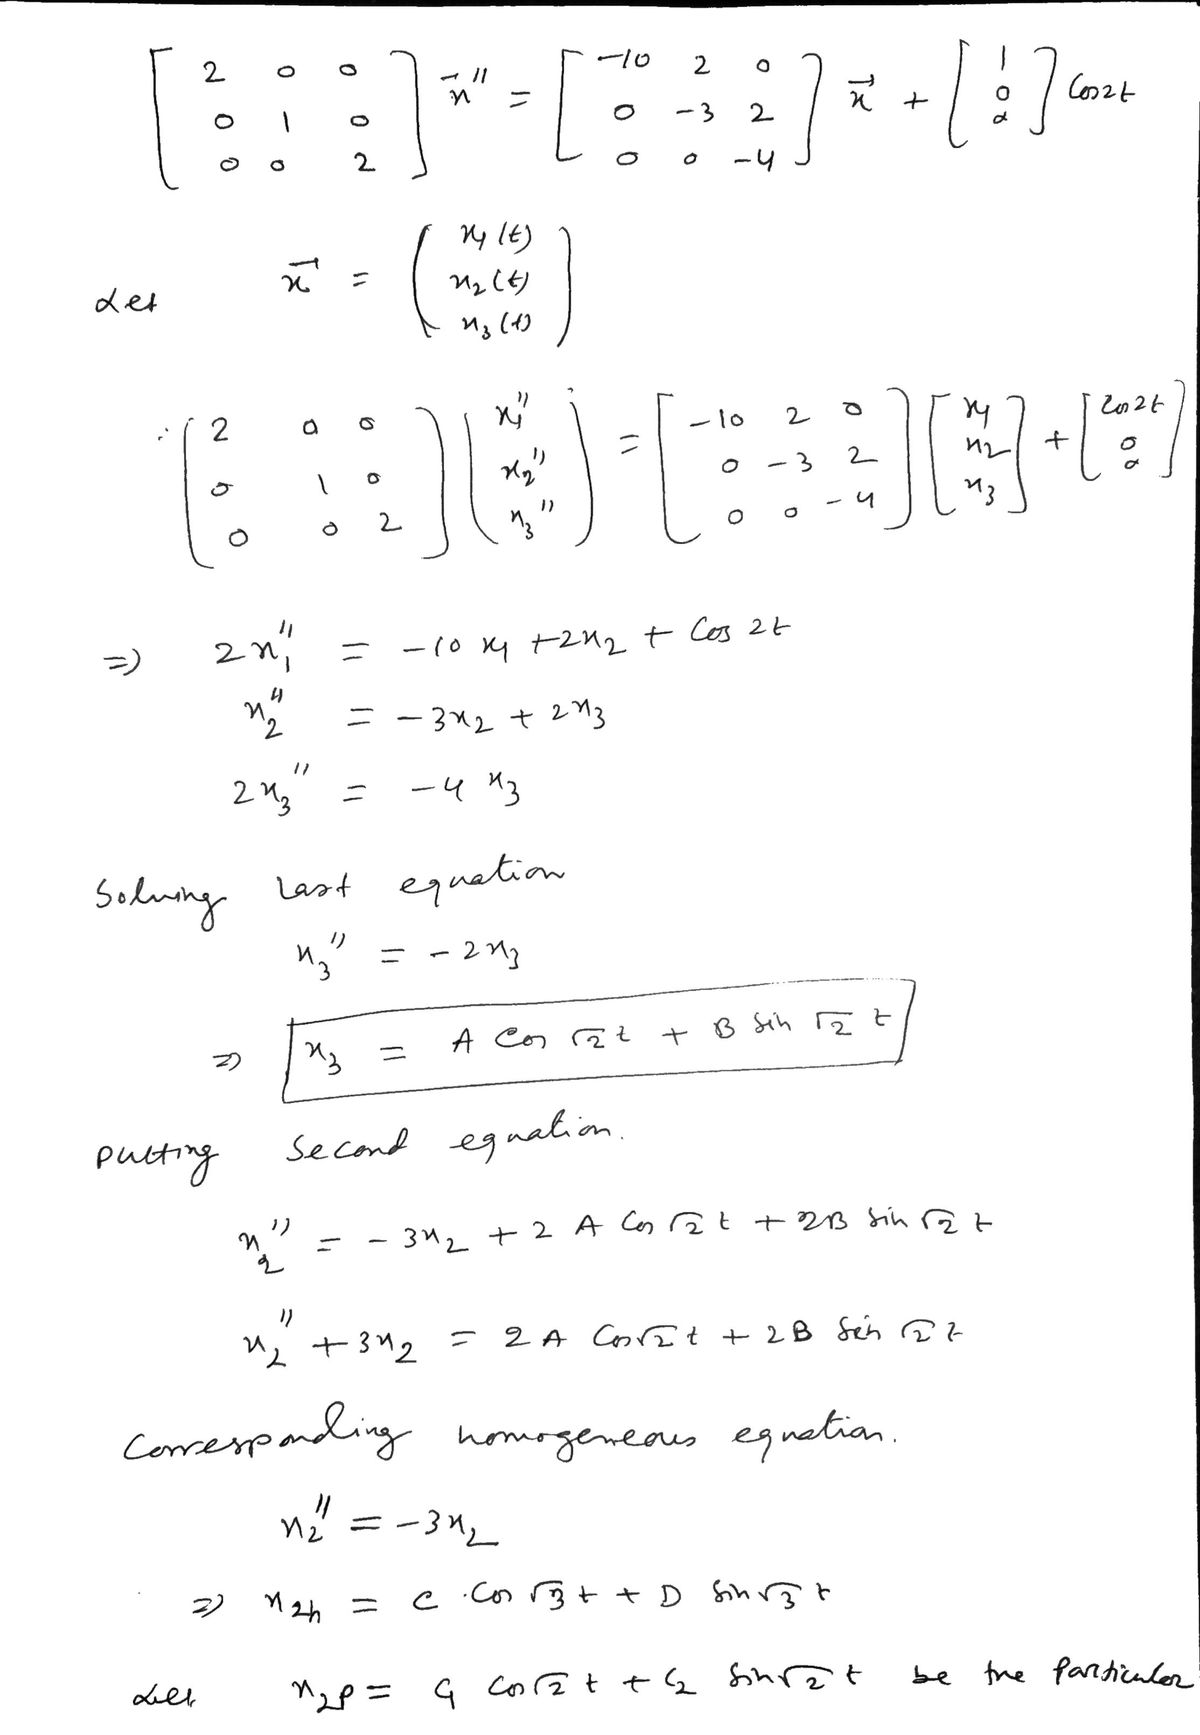 [2 0 0; 0 1 0; 0 0 2] x⃗'' = [-10 2 0; 0 -3 2; 0 0 -4] x⃗ + [1; 0; 0] Cos2t
Let x⃗ = (x₁(t); x₂(t); x₃(t))
∴ [2 0 0; 0 1 0; 0 0 2] (x₁''; x₂''; x₃'') = [-10 2 0; 0 -3 2; 0 0 -4] [x₁; x₂; x₃] + [Cos2t; 0; 0]
⇒) 2x₁'' = -10 x₁ + 2x₂ + Cos 2t
x₂'' = -3x₂ + 2x₃
2x₃'' = -4 x₃
Solving Last equation
x₃'' = -2x₃
⇒) x₃ = A Cos √2 t + B Sin √2 t
Putting Second equation.
x₂'' = -3x₂ + 2 A Cos √2 t + 2B Sin √2 t
x₂'' + 3x₂ = 2 A Cos√2 t + 2B Sin √2 t
Corresponding homogeneous equation.
x₂'' = -3x₂
⇒) x₂h = C · Cos √3 t + D Sin √3 t
Let x₂p = C₁ Cos√2 t + C₂ Sin√2 t be the Particular